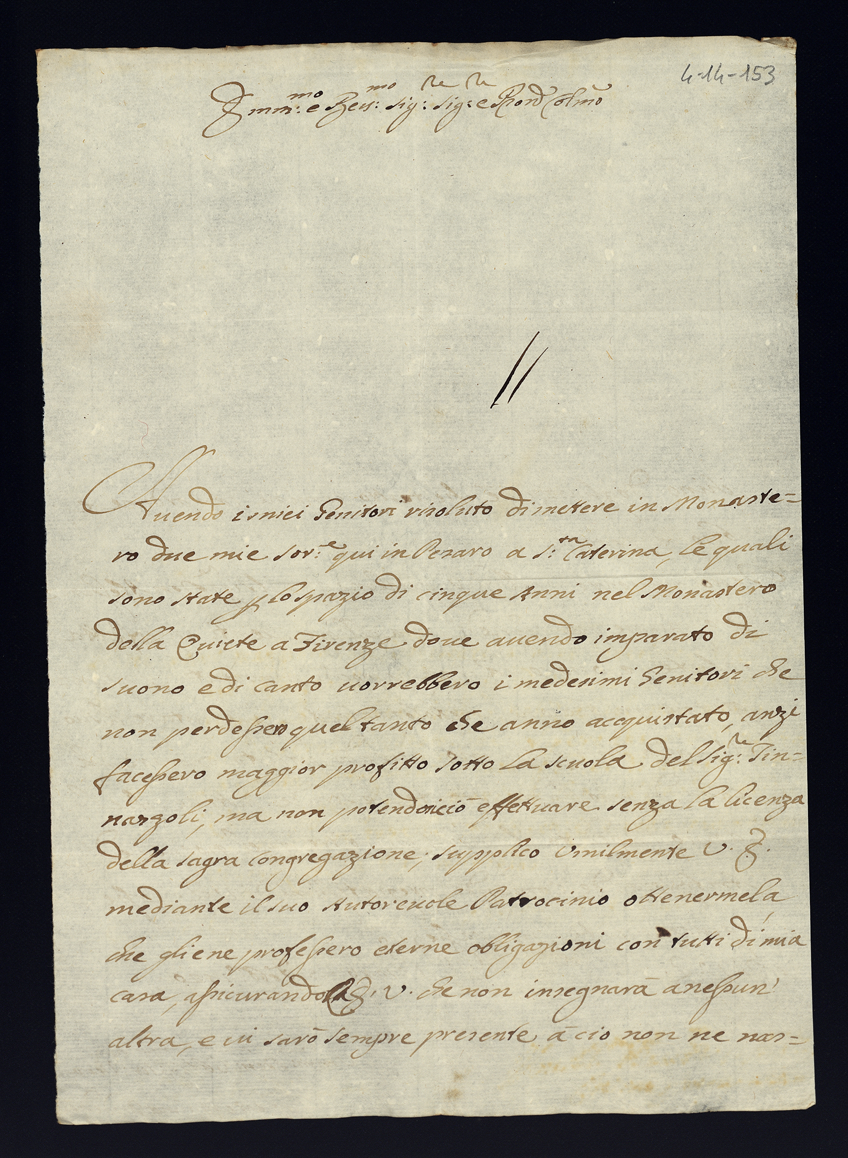 4-14-153
Emm.mo e Rev.mo Sig.re Sig.re e Pron Colmo
Auendo i miei Genitori risoluto di mettere in Monaste=
ro due mie Sor.e qui in Pesaro a S.ta Caterina, le quali
sono state p lo spazio di cinque Anni nel Monastero
della Quiete a Firenze doue auendo imparato di
suono e di canto uorrebbero i medesimi Genitori che
non perdessero quel tanto che anno acquistato, anzi
facessero maggior profitto sotto la scuola del Sig.re Tin=
nazzoli, ma non potendosi ciò effettuare senza la licenza
della sagra Congregazione, supplico Umilmente V. E.
mediante il suo Autoreuole Patrocinio ottenermela
che gliene professero eterne obligazioni con tutti di mia
casa, assicurando E. V. che non insegnarà a nessun'
altra, e ui sarò sempre presente à cio non ne nas=